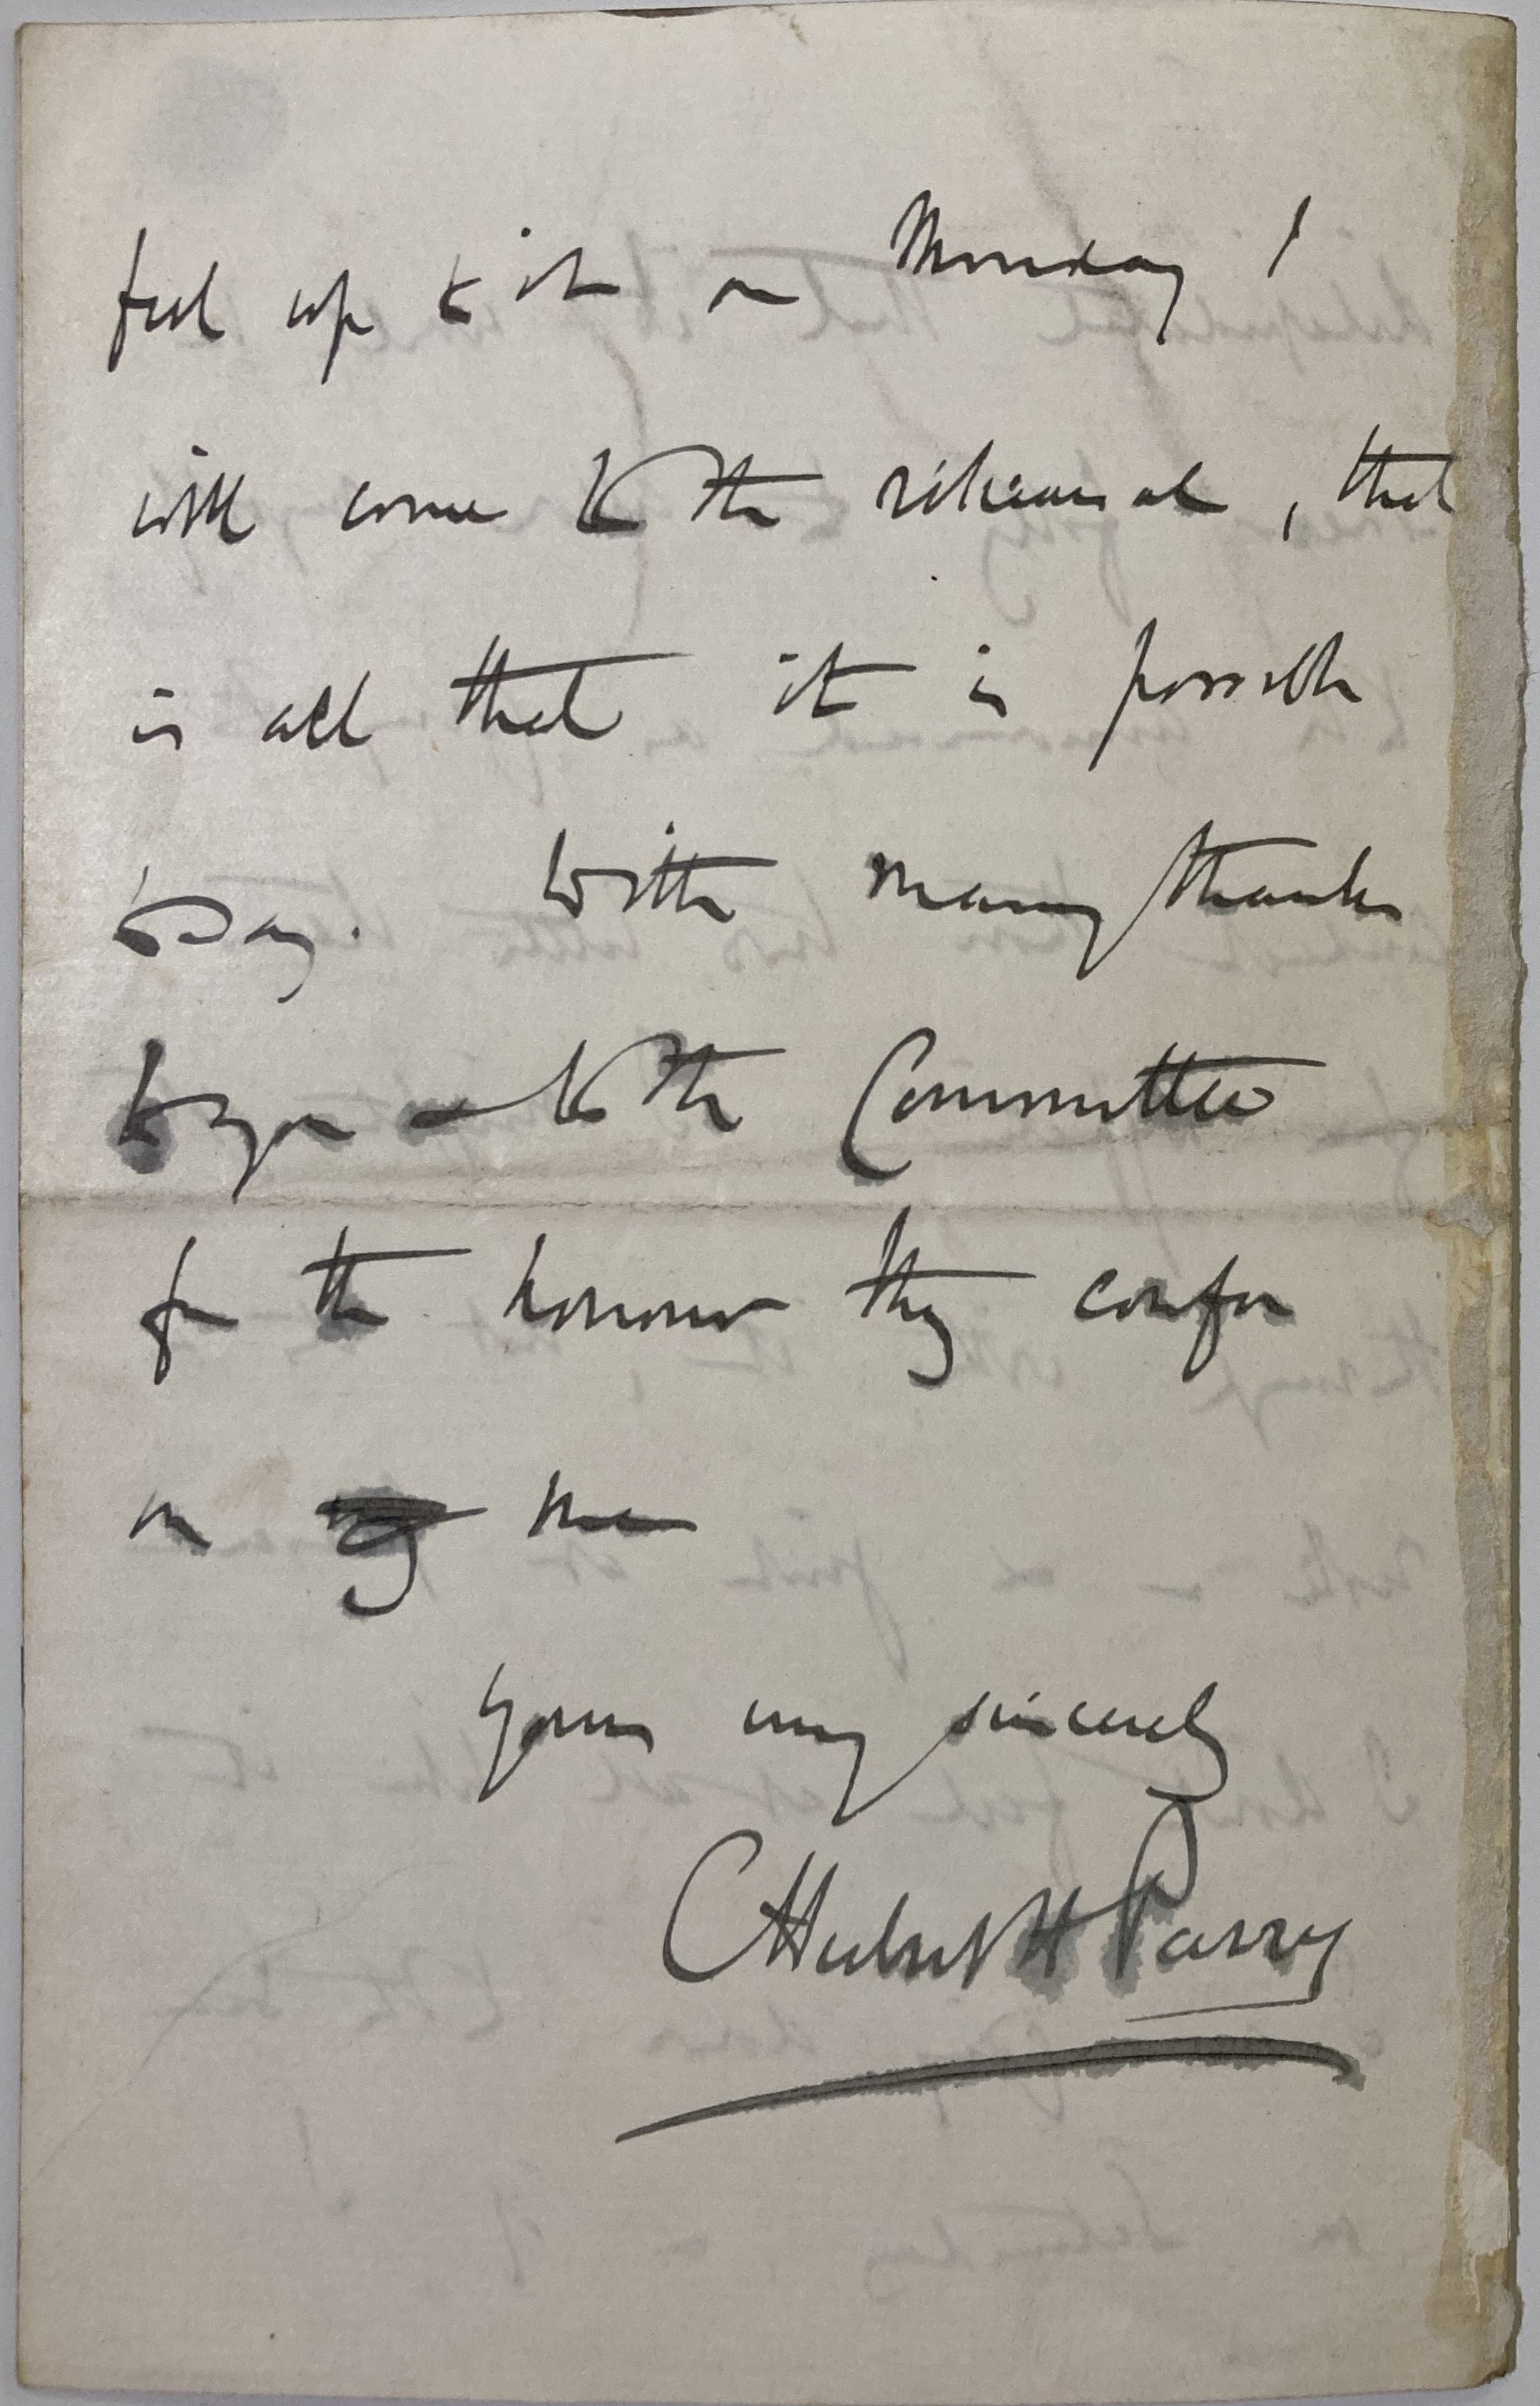 feel up to it on Monday I
will come to the rehearsal, that
is all that it is possible
to say. With many thanks
to you and to the Committee
for the honour they confer
on me
Yours very sincerely
C Hubert H Parry